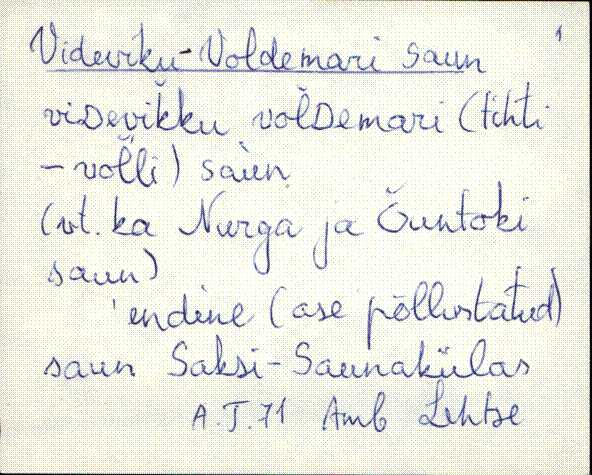 1
Videviku-Voldemari saun
viDevikku volDemari (tihti
- volli) saun
(vt. ka Nurga ja Õuntoki
saun)
endine (ase põllustatud)
saun Saksi-Saunakülas
A.J.71 Amb Lehtse